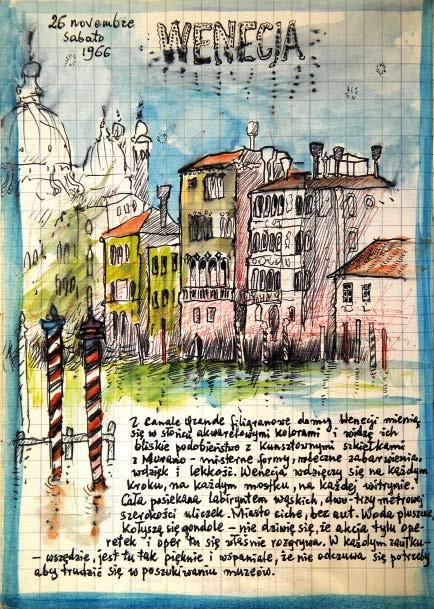 26 novembre
sabato
1966
WENECJA
Z Canale Grande filigranowe domy Wenecji mienią
się w słońcu akwarelowymi kolorami i widzę ich
bliskie podobieństwo z kunsztownymi szkiełkami
z Murano - misterne formy, mleczne zabarwienia,
wdzięk i lekkość. Wenecja wdzięczy się na każdym
kroku, na każdym mostku, na każdej witrynie.
Cała posiekana labiryntem wąskich, dwu-trzy metrowej
szerokości uliczek. Miasto ciche, bez aut. Woda pluszcze
Kołyszą się gondole - nie dziwię się, że akcja tylu ope-
retek i oper tu się właśnie rozgrywa. W każdym zaułku-
- wszędzie, jest tu tak pięknie i wspaniale, że nie odczuwa się potrzeby
aby trudzić się w poszukiwaniu muzeów.